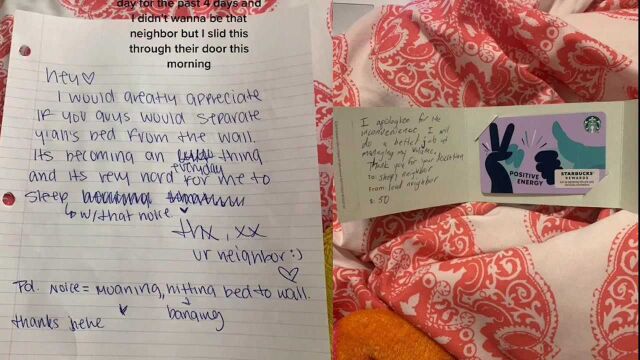 day for the past 4 days and
I didn't wanna be that
neighbor but I slid this
through their door this
morning
Hey♡
I would greatly appreciate
IF you guys would separate
y'alls bed from the wall.
Its becoming an everyday thing
and its very hard for me to
sleep
↳ w/that noise.
thx, xx
ur neighbor:)
♡
Pd. Noise = Moaning, hitting bed to wall.
banging
thanks hehe
I apologize for the
inconvenience. I will
do a better job of
managing my volume.
Thank you for your
To: sleepy neighbor
From: loud neighbor
$: 50
POSITIVE
ENERGY
STARBUCKS
REWARDS